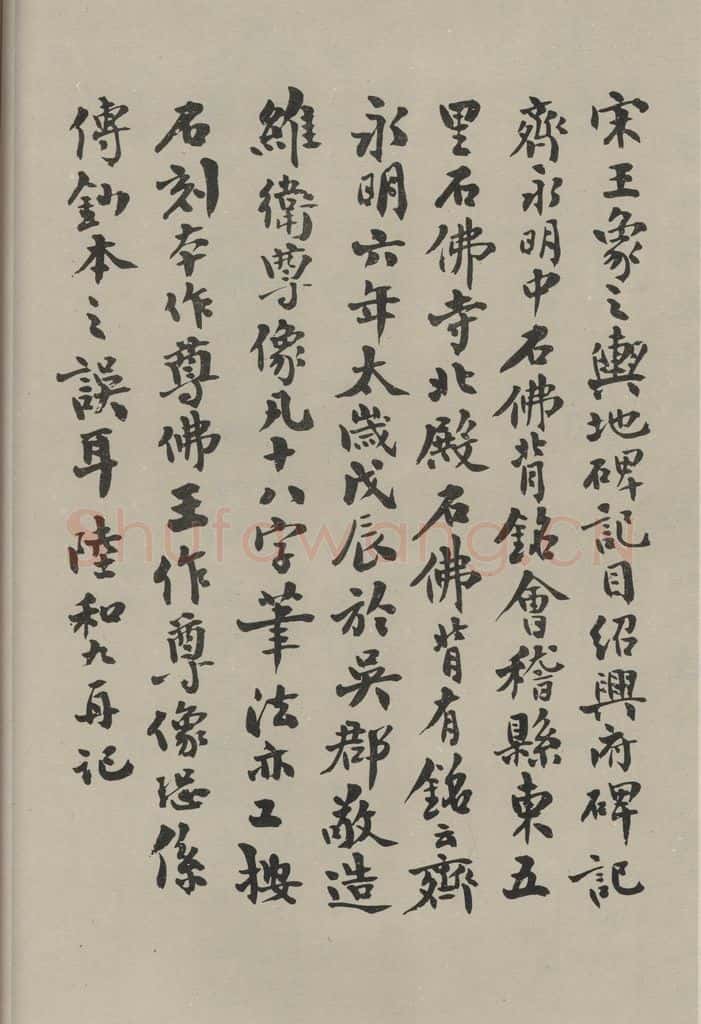 宋王象之輿地碑記目紹興府碑記
齊永明中石佛背銘會稽縣東五
里石佛寺北殿石佛背有銘云齊
永明六年太歲戊辰於吳郡敬造
維衛尊像凡十八字筆法亦工按
石刻本作尊佛王作尊像恐係
傳鈔本之誤耳 陸和九再記
Shufawang.CN